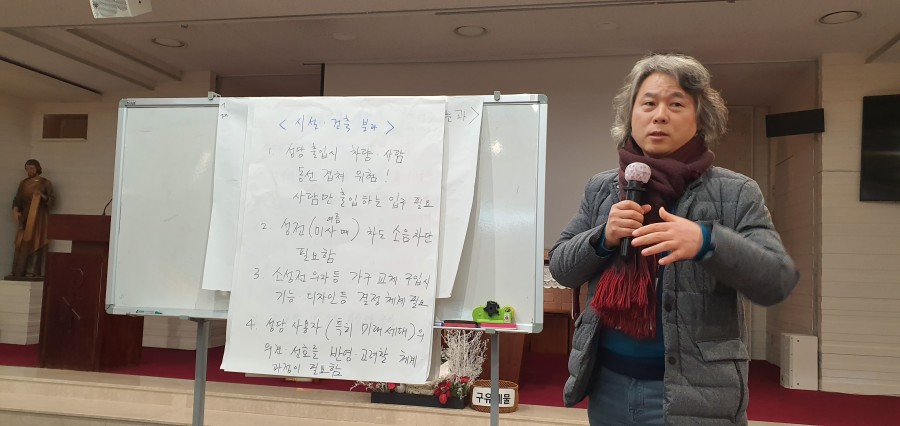 < 시설·건축 분과 >
1. 성당 출입시 차량 사람
동선 겹쳐 위험!
사람만 출입하는 입구 필요
2. 성전(미사 여름 때) 차도 소음차단
필요함
3. 소성전 의자 등 가구 교체 구입시
기능·디자인등 결정 체계 필요
4. 성당 사용자 (특히 미래세대)의
의견 선호를 반영 고려할 체계·
과정이 필요함
과>
구유예물